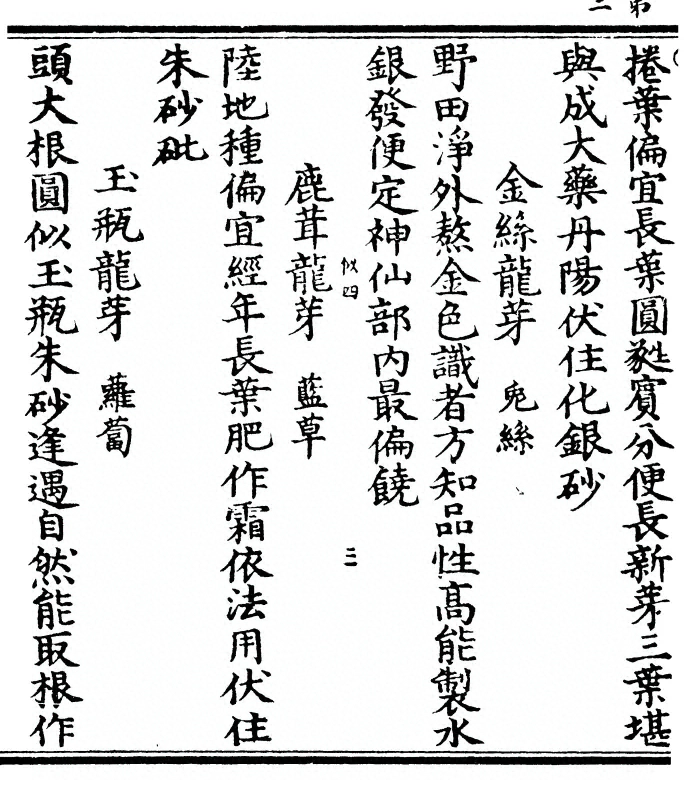 第二
捲葉偏宜長葉圓蕤賓八分便長新芽三葉堪
與成大藥丹陽伏住化銀砂
金絲龍芽 兎絲
野田淨外熬金色識者方知品性高能製水
銀發便定神仙部內最偏饒
似四 三
鹿茸龍芽 藍草
陸地種偏宜經年長葉肥作霜依法用伏住
朱砂砒
玉瓶龍芽 蘿蔔
頭大根圓似玉瓶朱砂逢遇自然能取根作